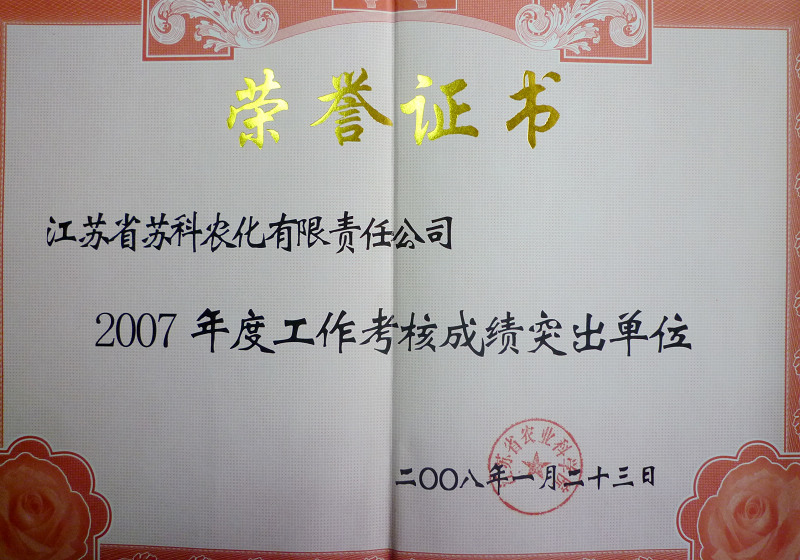 荣誉证书
江苏省苏科农化有限责任公司
2007年度工作考核成绩突出单位
江苏省农业科学院
二〇〇八年一月二十三日